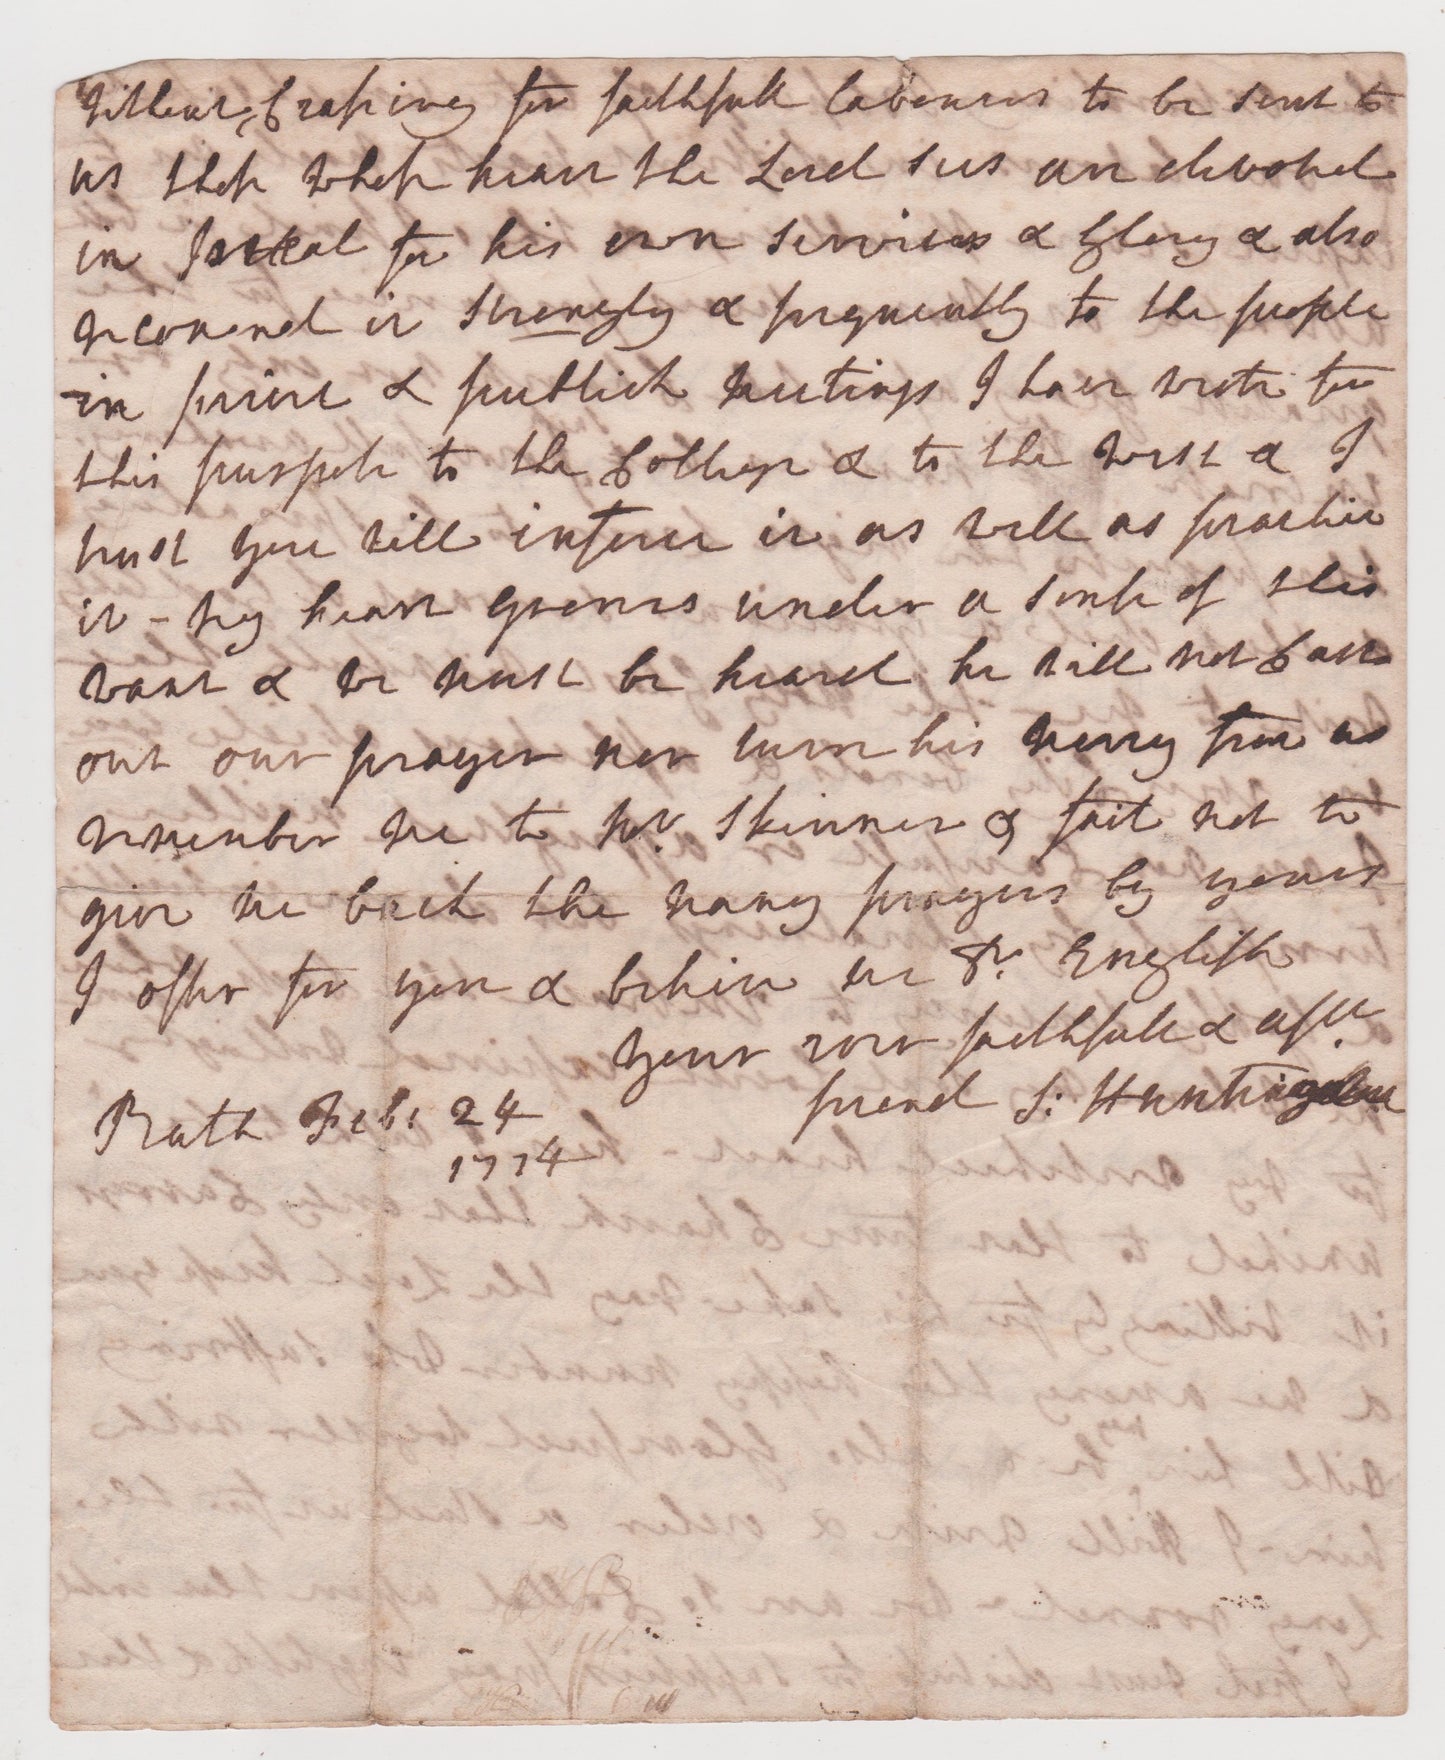 without, ceasing for faithfull labourers to be sent to
us those whose heart the Lord sees are devoted
in Israel for his own services & Glory & also
recomend it strongly & frequently to the people
in privt & publick meetings I have wrote for
this purpose to the College & to the west & I
trust you will inforce it as well as practice
it - my heart groans under a sense of this
want & we must be heard he will not Cast
out our prayer nor turn his mercy from us
remember me to Mr. Skinner & fail not to
give me back the many prayers by yours
I offer for you & believe me Dr. English
your ever faithfull & afft.
friend S: Huntingdon
Bath Feb: 24
1774